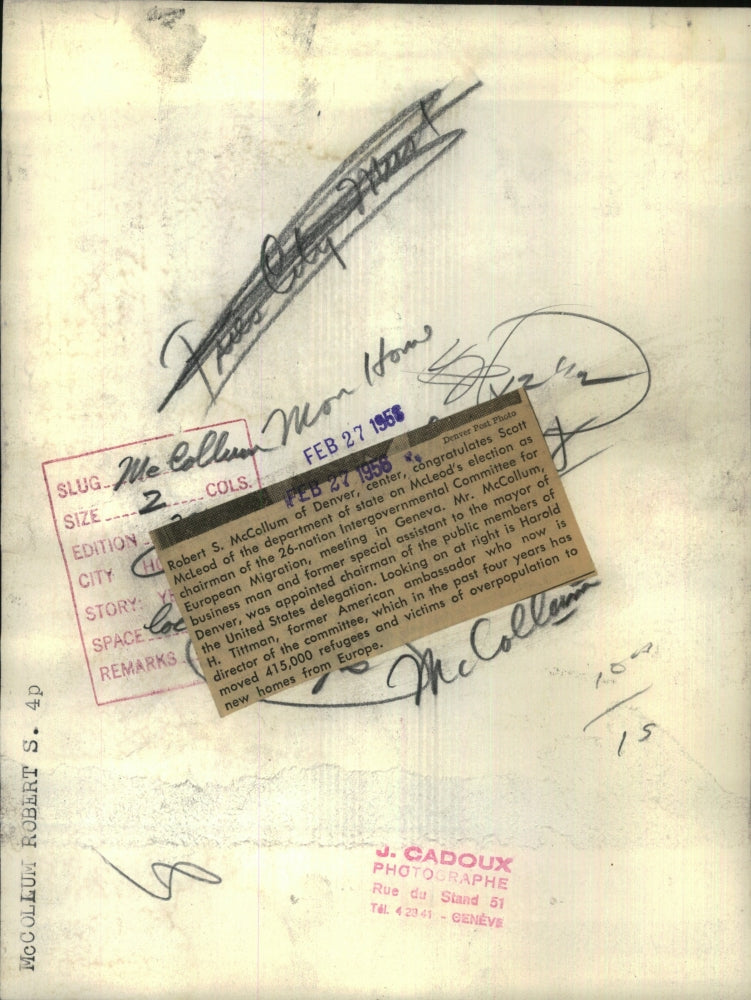 City
Mon Home
McCollum
FEB 27 1956
FEB 27 1956
SLUG
SIZE 2 COLS.
EDITION
CITY HO
STORY: YE
SPACE
REMARKS
Denver Post Photo
Robert S. McCollum of Denver, center, congratulates Scott
McLeod of the department of state on McLeod's election as
chairman of the 26-nation Intergovernmental Committee for
European Migration, meeting in Geneva. Mr. McCollum,
business man and former special assistant to the mayor of
Denver, was appointed chairman of the public members of
the United States delegation. Looking on at right is Harold
H. Tittman, former American ambassador who now is
director of the committee, which in the past four years has
moved 415,000 refugees and victims of overpopulation to
new homes from Europe.
McCollum
15
McCOLLUM ROBERT S. 4p
J. CADOUX
PHOTOGRAPHE
Rue du Stand 51
Tél. 4 28 41 - GENÈVE